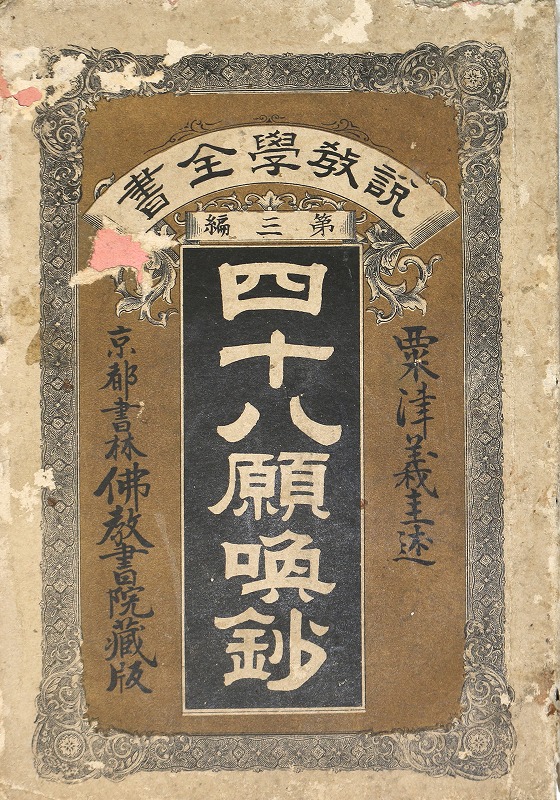 說教學全書
第三編
四十八願喚鈔
粟津義圭述
京都書林佛教書院藏版